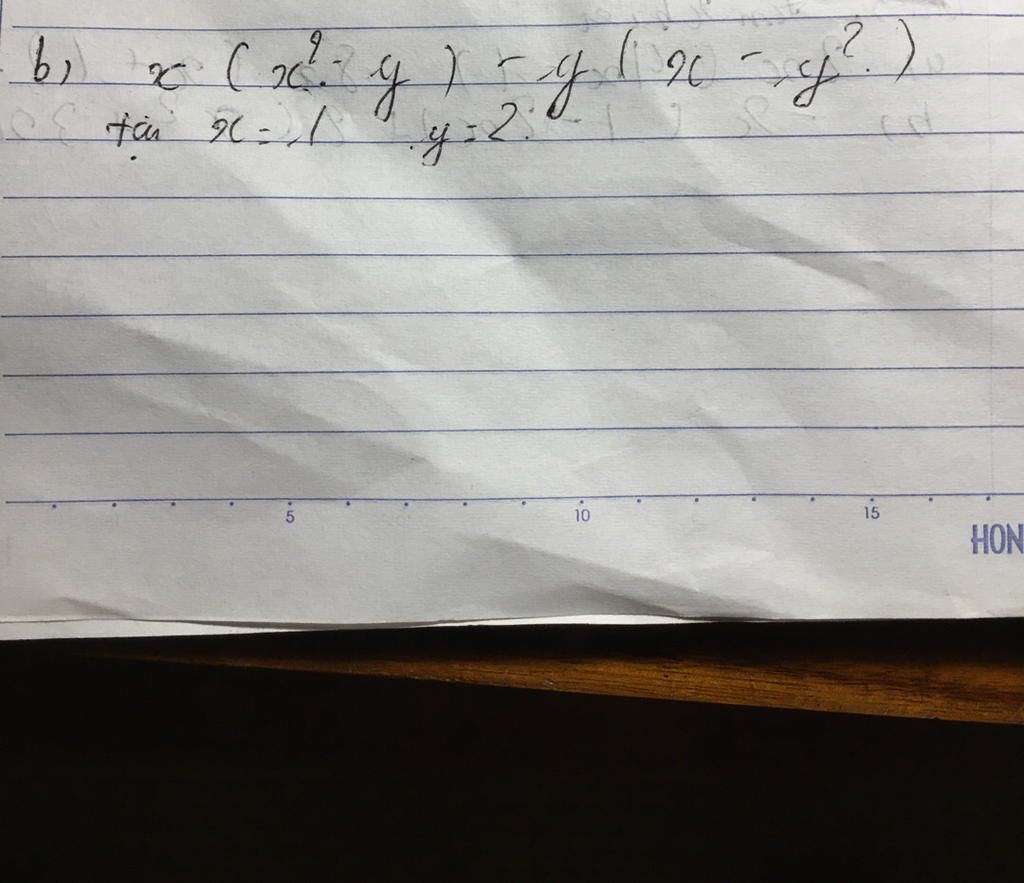 b) x (x² - y) - y (x - y²)
tại x = 1 y = 2.
5 10 15
HON